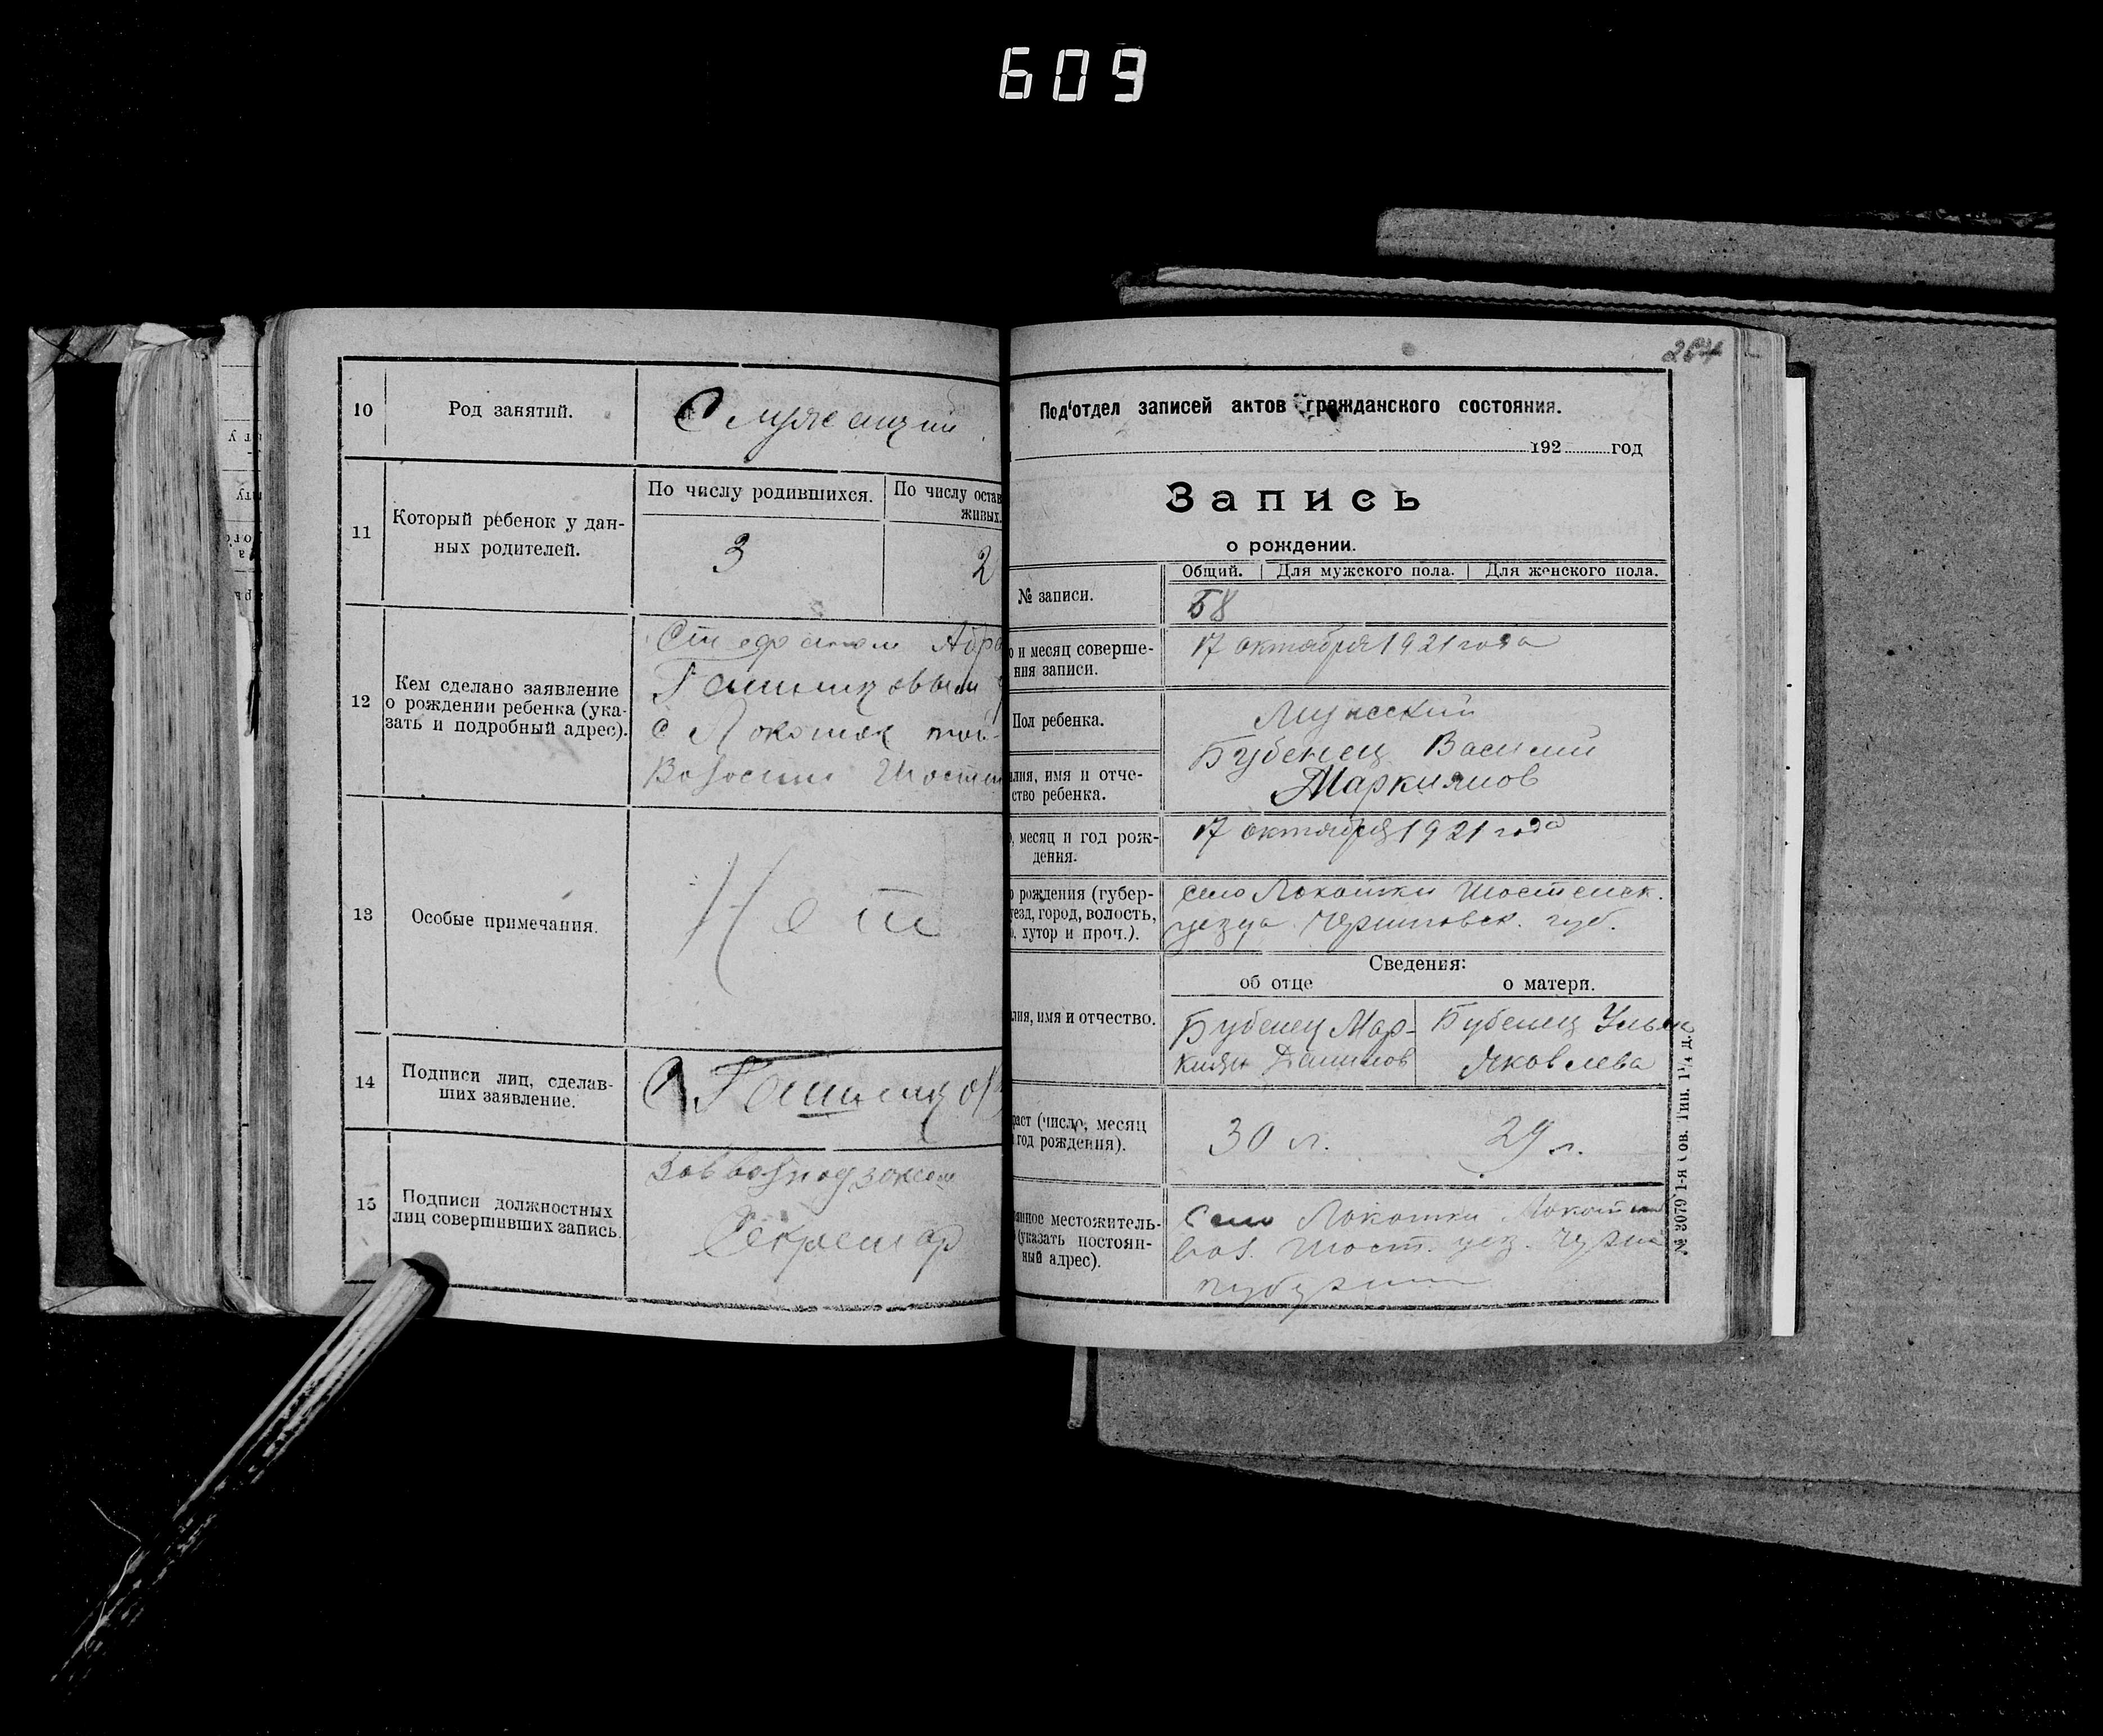 609
10
Род занятий.
Служащий
11
Который ребенок у дан-
ных родителей.
По числу родившихся.
По числу остав
живых.
3
2
12
Кем сделано заявление
о рождении ребенка (ука-
зать и подробный адрес).
Стефаном Абра
Гашинцовым
с Локоток той-
Волости Шостен
13
Особые примечания.
Нет
14
Подписи лиц, сделав-
ших заявление.
15
Подписи должностных
лиц совершивших запись.
Секретар
204
Под‘отдел записей актов гражданского состояния.
192 год
Запись
о рождении.
Общий.
Для мужского пола.
Для женского пола.
№ записи.
58
о и месяц соверше-
ния записи.
17 октября 1921 года
Пол ребенка.
Мужский
илия, имя и отче-
ство ребенка.
Бубенец Василий
Маркиянов
о, месяц и год рож-
дения.
17 октября 1921 года
о рождения (губер-
уезд, город, волость,
о, хутор и проч.).
село Локотки Шостенск.
уезда Черниговск. губ.
Сведения:
об отце
о матери.
лия, имя и отчество.
Бубенец Мар-
киян Данилов
Бубенец Ульян
Яковлева
раст (число, месяц
год рождения).
30 л.
29 л.
янное местожитель-
(указать постоян-
ный адрес).
Село Локотки Локотск
вол. Шост. уез. Черни
губерни
№ 3079 1-я Сов. Тип. 1¼ д.